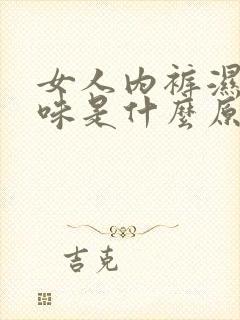 女人内裤濕
味是什麼原
吉克